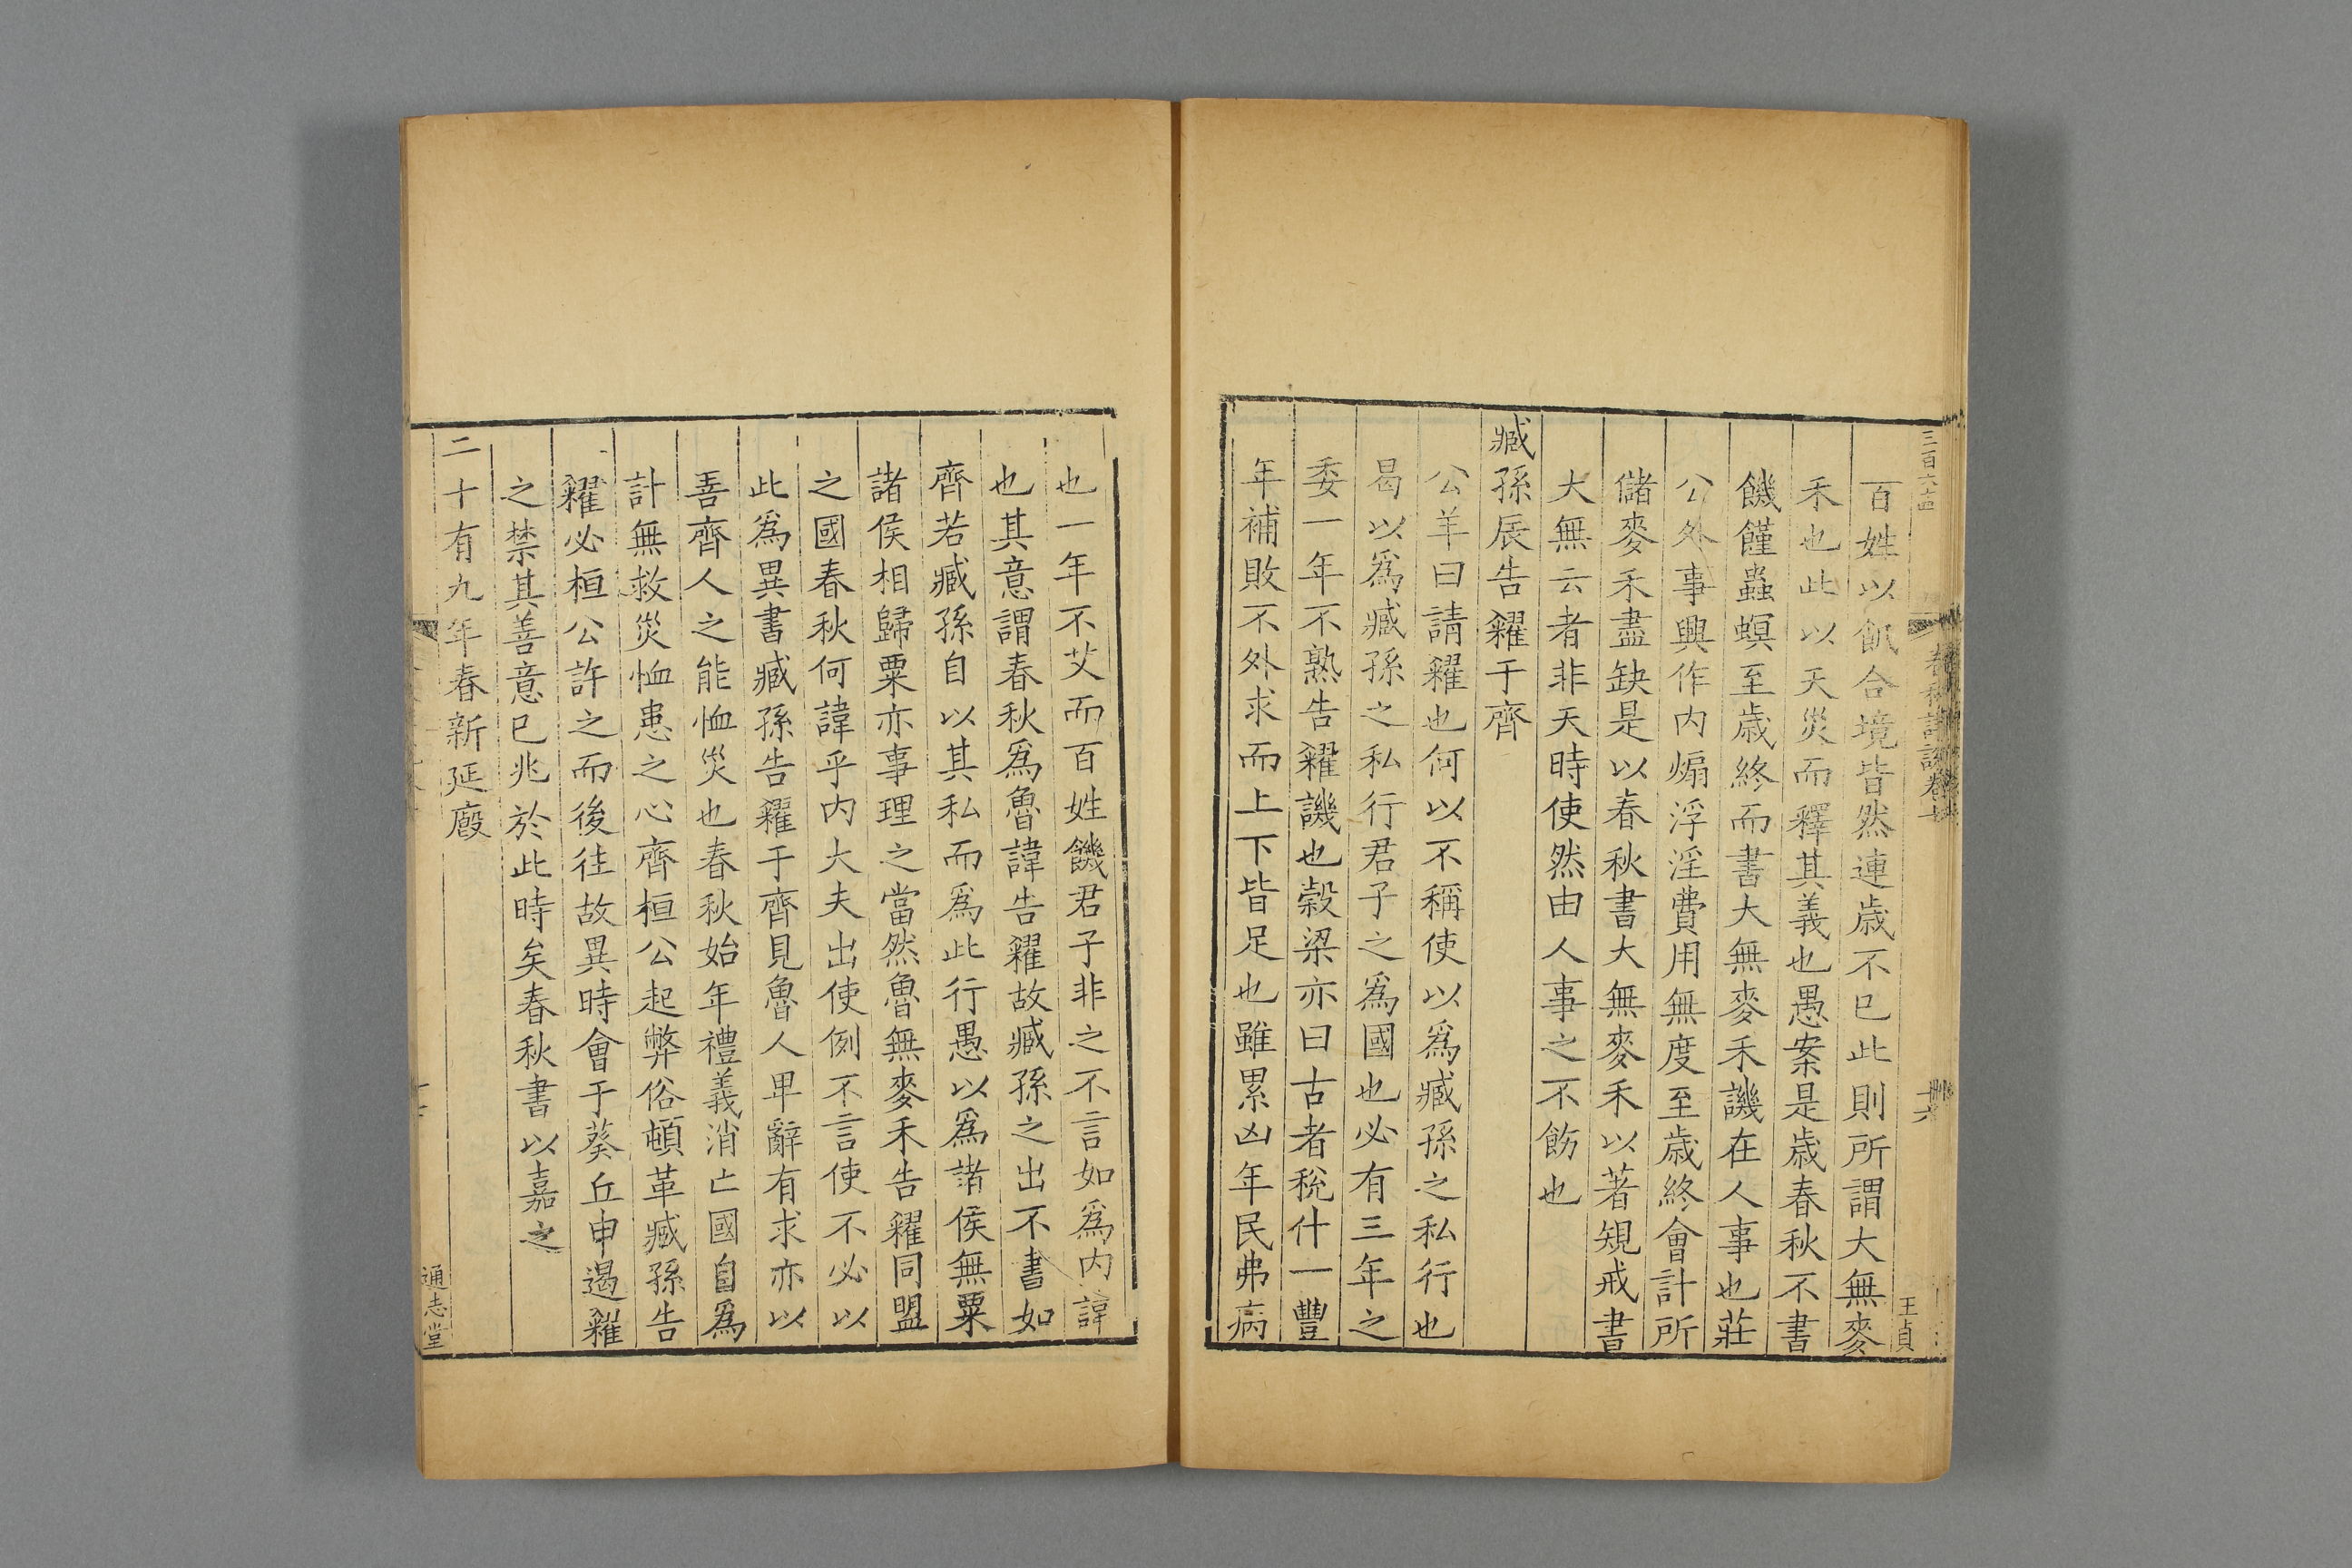 三百六十四
王貞
百姓以飢合境皆然連歳不已此則所謂大無麥
禾也此以天災而釋其義也愚案是歳春秋不書
饑饉蟲螟至歳終而書大無麥禾譏在人事也莊
公外事興作内煽浮淫費用無度至歳終會計所
儲麥禾盡缺是以春秋書大無麥禾以著規戒書
大無云者非天時使然由人事之不飭也
臧孫辰告糴于齊
公羊曰請糴也何以不稱使以爲臧孫之私行也
曷以爲臧孫之私行君子之爲國也必有三年之
委一年不熟告糴譏也榖梁亦曰古者稅什一豐
年補敗不外求而上下皆足也雖累凶年民弗病
也一年不艾而百姓饑君子非之不言如爲内諱
也其意謂春秋爲魯諱告糴故臧孫之出不書如
齊若臧孫自以其私而爲此行愚以爲諸侯無粟
諸侯相歸粟亦事理之當然魯無麥禾告糴同盟
之國春秋何諱乎内大夫出使例不言使不必以
此爲異書臧孫告糴于齊見魯人卑辭有求亦以
善齊人之能恤災也春秋始年禮義消亡國自爲
計無救災恤患之心齊桓公起弊俗頓革臧孫告
糴必桓公許之而後往故異時會于葵丘申遏糴
之禁其善意已兆於此時矣春秋書以嘉之
二十有九年春新延廏
通志堂